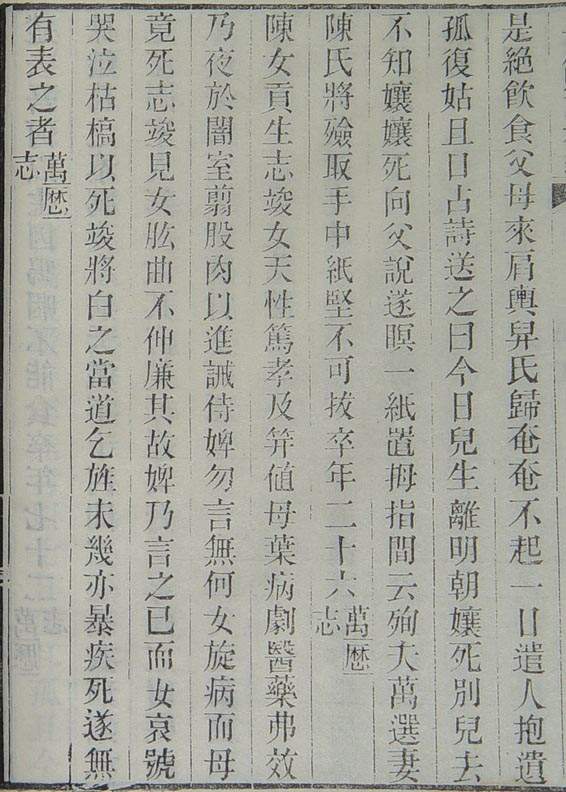 是絶飲食父母來肩輿舁氏歸奄奄不起一日遣人抱遺
孤復姑且口占詩送之曰今日兒生離明朝孃死別兒去
不知孃孃死向父說遂暝一紙置拇指間云殉夫萬選妻
陳氏將殮取手中紙堅不可拔卒年二十六萬歷志
陳女貢生志竣女天性篤孝及笄值母葉病劇醫藥弗效
乃夜於闇室翦股肉以進誡侍婢勿言無何女旋病而母
竟死志竣見女肱曲不伸廉其故婢乃言之已而女哀號
哭泣枯槁以死竣將白之當道乞旌未幾亦暴疾死遂無
有表之者萬歷志